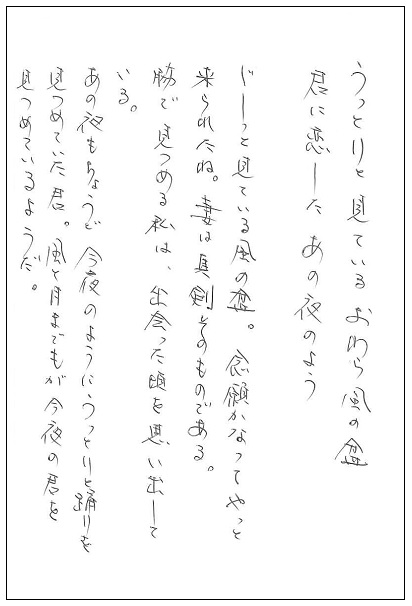 うっとりと見ている おわら風の盆
君に恋した あの夜のよう
じーっと見ている風の盆。 念願かなってやっと
来られたね。妻は真剣そのものである。
脇で見つめる私は、出会った頃を思い出して
いる。
あの夜もちょうど今夜のようにうっとりと踊りを
見つめていた君。風と月までもが今夜の君を
見つめているようだ。